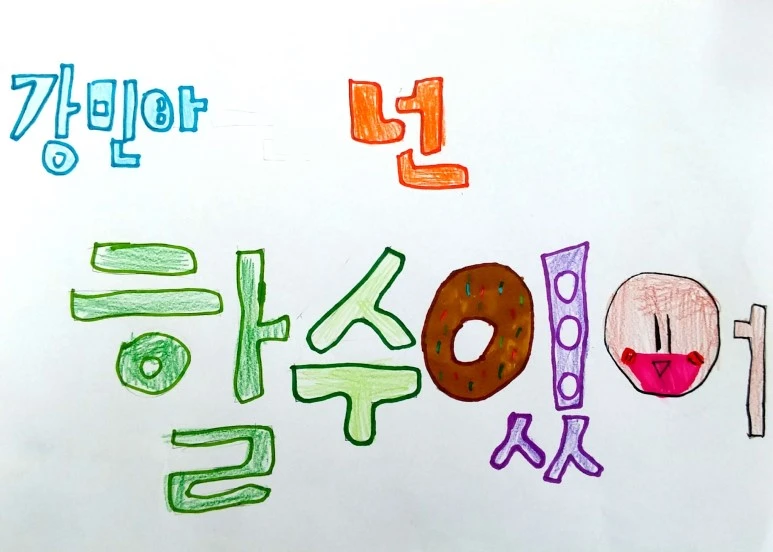 강민아 넌
할수있어